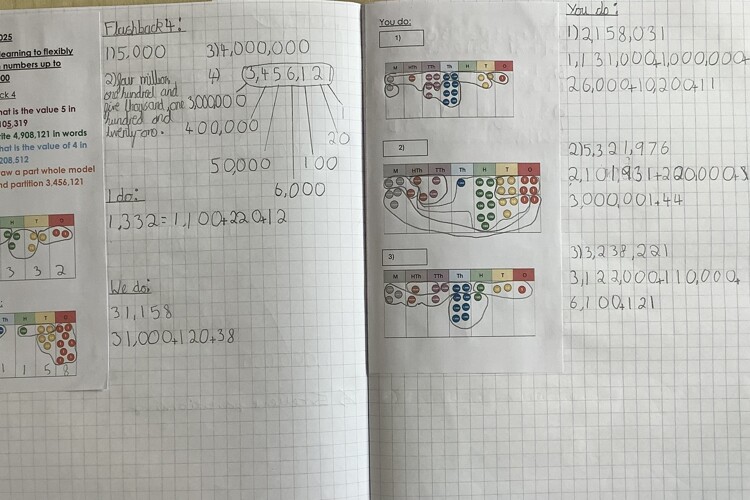 025
learning to flexibly
numbers up to
00
ck 4
hat is the value 5 in
105,319
rite 4,908,121 in words
hat is the value of 4 in
208,512
raw a part whole model
nd partition 3,456,121
H T O
3 3 2
Th H T O
1 1 5 8
Flashback 4:
1) 5,000
3) 4,000,000
one hundred and
hundred and
4) 3,456,121
3,000,000
400,000
50,000
6,000
100
20
1
I do:
1,332 = 1,100+220+12
We do:
31,158
31,000+120+38
You do:
1)
M HTh TTh Th H T O
2)
M HTh TTh Th H T O
3)
M HTh TTh Th H T O
You do:
1) 2,158,031
1,131,000+1,000,000+
26,000+10,20+11
2) 5,321,976
3,000,001+44
3) 3,238,221
3,122,000+110,000+
6,100+121